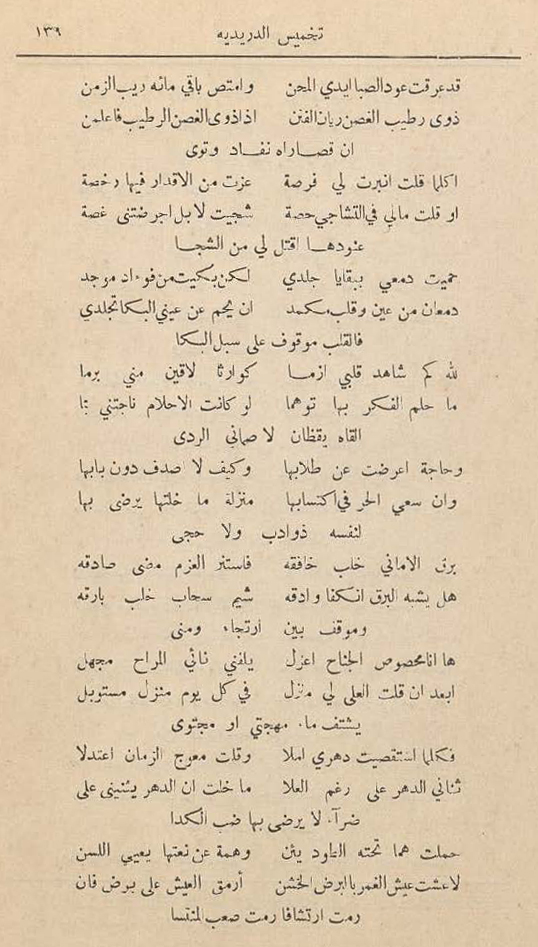 تخميس الدريديه ١٣٩
قد عرقت عود الصبا ايدي المحن وامتص باقي مائه ريب الزمن
ذوى رطيب الغصن ريان الفنن اذا ذوى الغصن الرطيب فاعلمن
ان قصاراه نفاد وتوى
اكلما قلت انبرت لي فرصة عزت من الاقدار فيها رخصة
او قلت مالي في التشاجي حصة شجيت لا بل اجرضتنى غصة
عنودها اقتل لي من الشجا
حميت دمعي ببقايا جلدي لكن بكيت من فوءاد موجد
دمعان من عين وقلب مكمد ان يحم عن عيني البكا تجلدي
فالقلب موقوف على سبل البكا
لله كم شاهد قلبي ازما كوارثا لاقين مني برما
ما حلم الفكر بها توهما لو كانت الاحلام ناجتني بما
القاه يقظان لاصماني الردى
وحاجة اعرضت عن طلابها وكيف لا صدف دون بابها
وان سعي الحر في اكتسابها منزلة ما خلتها يرضى بها
لنفسه ذو ادب ولا حجى
برق الاماني خلب خافقه فاستنر العزم مضى صادقه
هل يشبه البرق انكفا وادقه شيم سحاب خلب بارقه
وموقف بين ارتجاء ومنى
ها انا محصوص الجناح اعزل يلفني نائي المراح مجهل
ابعد ان قلت العلى لي منزل في كل يوم منزل مستوبل
يشتف ماء مهجتي او مجتوى
فكلما استقصيت دهري املا وقلت معوج الزمان اعتدلا
ثناني الدهر على رغم العلا ما خلت ان الدهر يثنينى على
ضرآء لا يرضى بها ضب الكدا
حملت هما تحته الطود يئن وهمة عن نعتها يعيي اللسن
لا عشت عيش الغمر بالبرض الخشن أرمق العيش على برض فان
رمت ارتشافا رمت صعب المنتسا